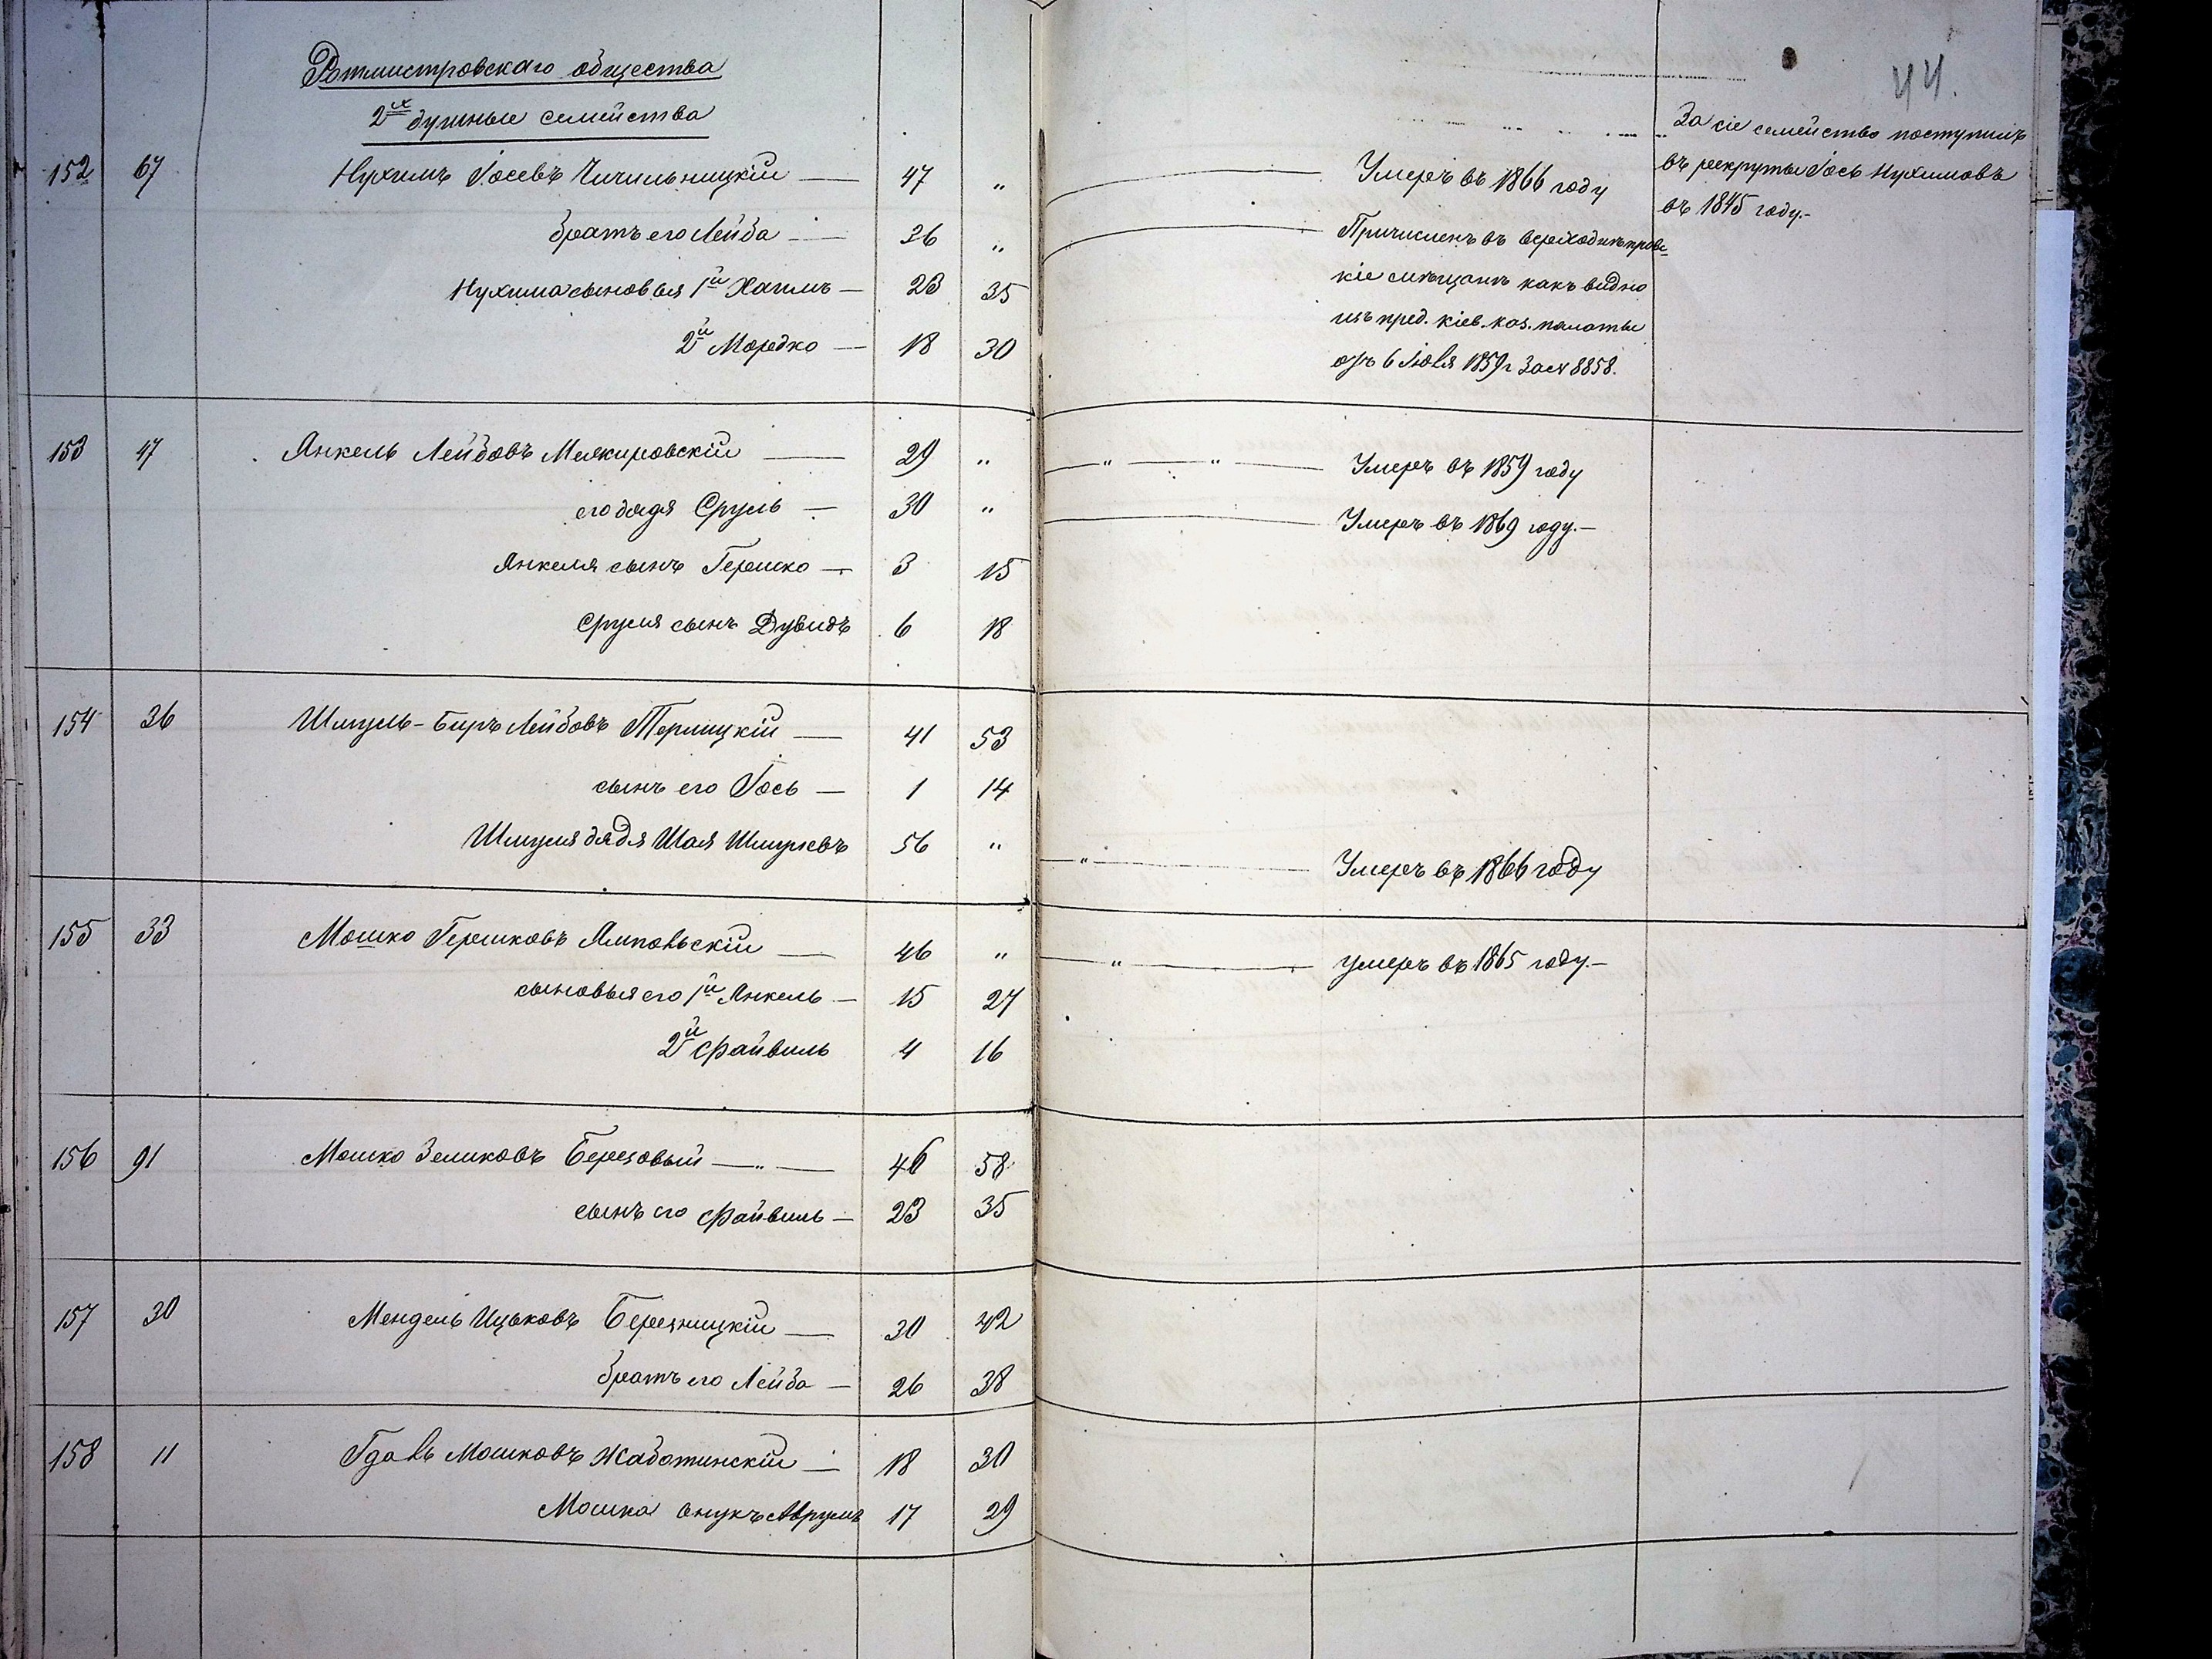 44.
Ротмистровскаго общества
2ᵘˣ душныe семейства
За сіе семейство поступилъ
въ рекруты Іось Нухимовъ
въ 1845 году.-
152 67 Нухимъ Іосевъ Чичильницкій — 47 „ — Умеръ въ 1866 году
братъ его Лейба — 36 „ — Причисленъ въ верходнѣпровс=
кіе мѣщане какъ видно
изъ пред. кіев. каз. палаты
отъ 6 Іюля 1859 г За № 8858.
Нухима сыновья 1й Хаимъ — 23 35
2й Мордко — 18 30
153 47 Янкель Лейбовъ Межировскій — 29 „ — „ — „ — Умеръ въ 1859 году
его дядя Сруль — 30 „ — Умеръ въ 1869 году.-
Янкеля сынъ Гершко — 3 15
Сруля сынъ Дувидъ 6 18
154 36 Шмуль-Беръ Лейбовъ Терлицкій — 41 53
сынъ его Іось — 1 14
Шмуля дядя Шая Шмулевъ 56 „ — „ — Умеръ въ 1866 году
155 33 Мошко Гершковъ Ямповьскій — 46 „ — „ — умеръ въ 1865 году.-
сыновья его 1й Янкель — 15 27
2й Файвиль 4 16
156 91 Мошко Зеликовъ Березовый — „ — 46 58
сынъ его Файвиль — 23 35
157 30 Мендель Ицьковъ Березницкій — 30 42
братъ его Лейба — 26 38
158 11 Гдаль Мошковъ Жаботинскій — 18 30
Мошка внукъ Аврумъ 17 29